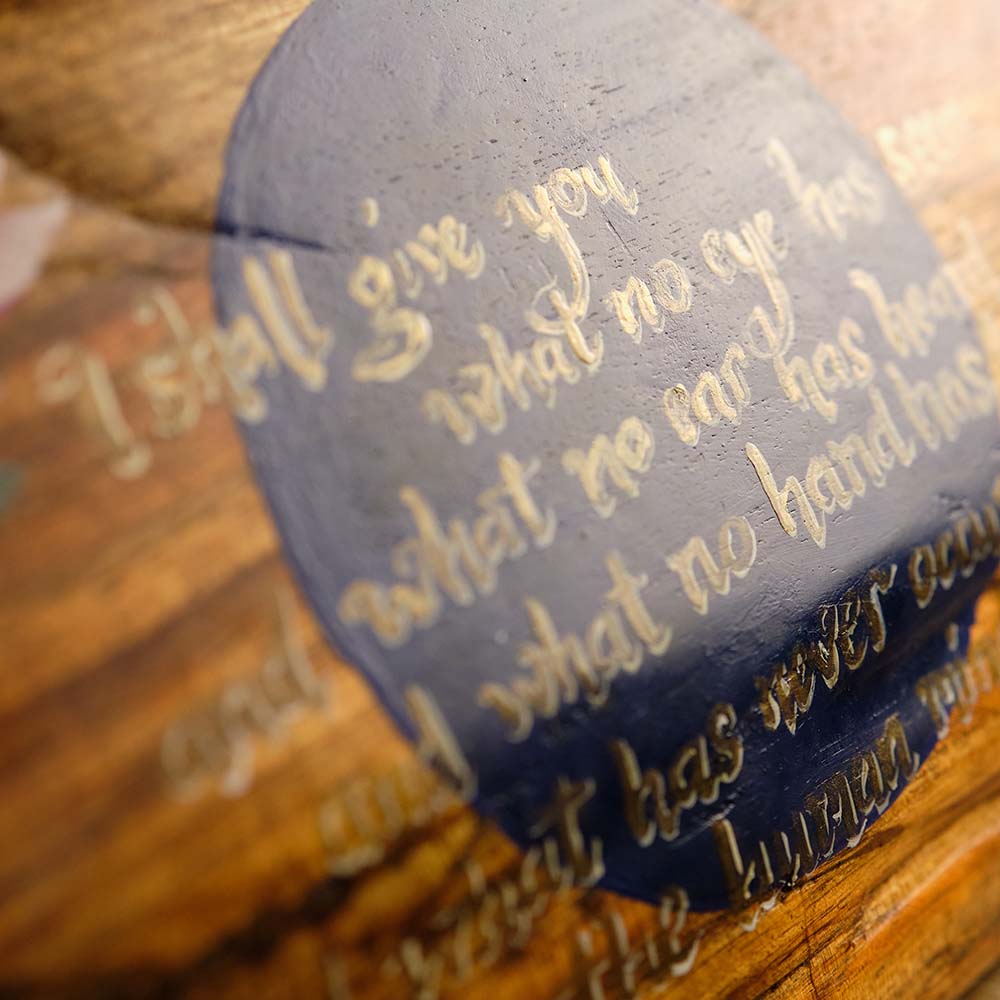 I shall give you
what no eye has see
and what no ear has hear
and what no hand has
what has never occu
the human min